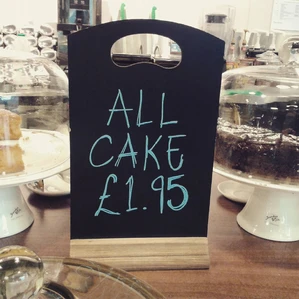 ALL
CAKE
£1.95